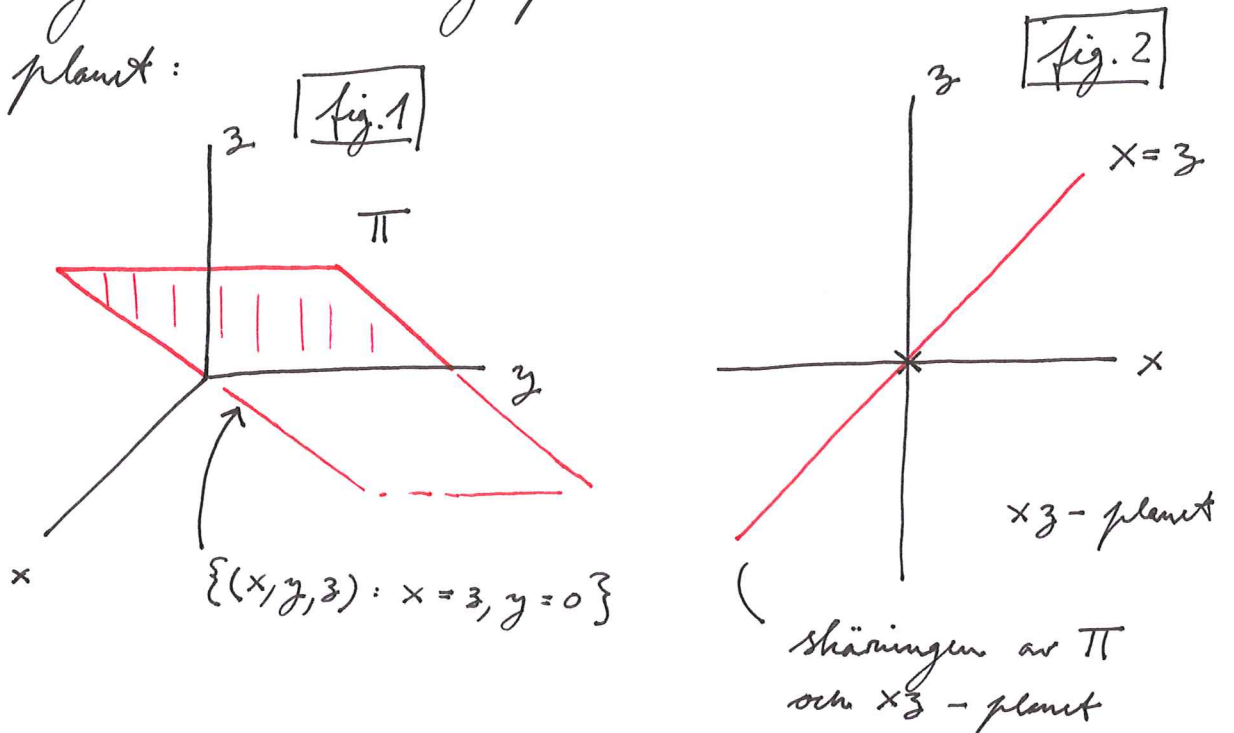 planet:
fig. 1
z
π
y
x
{(x,y,z): x = z, y = 0}
fig. 2
z
x = z
x
xz - planet
skärningen av π
och xz - planet